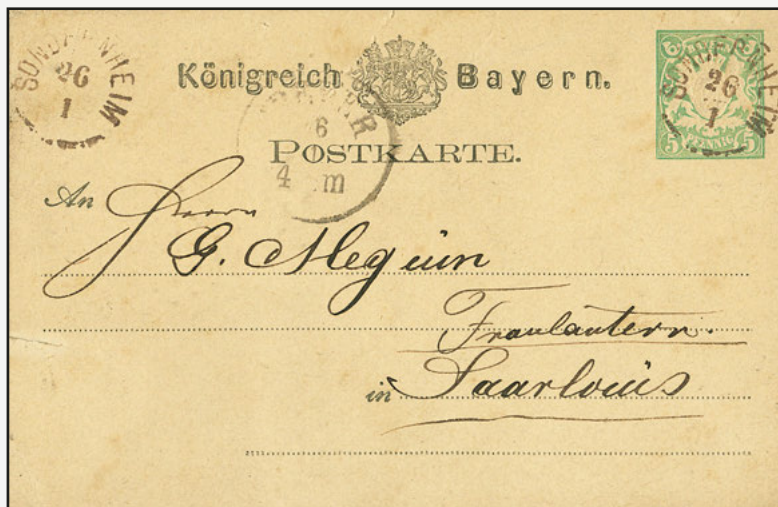 SONDERNHEIM
26
1
Königreich Bayern.
5 PFENNIG 5
SONDERNHEIM
26
1
6
4 m
POSTKARTE.
An Herrn
G. Meguin
Fraulautern.
in Saarlouis